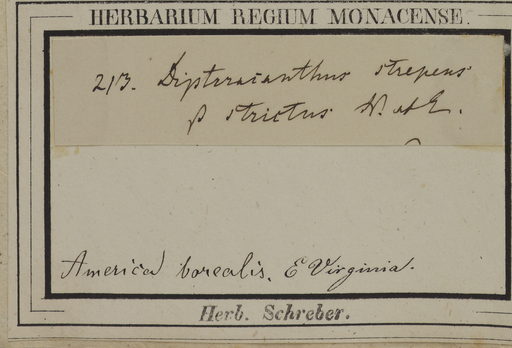 HERBARIUM REGIUM MONACENSE.
213. Dipteracanthus strepens
β strictus N. at E.
America borealis. E Virginia.
Herb. Schreber.